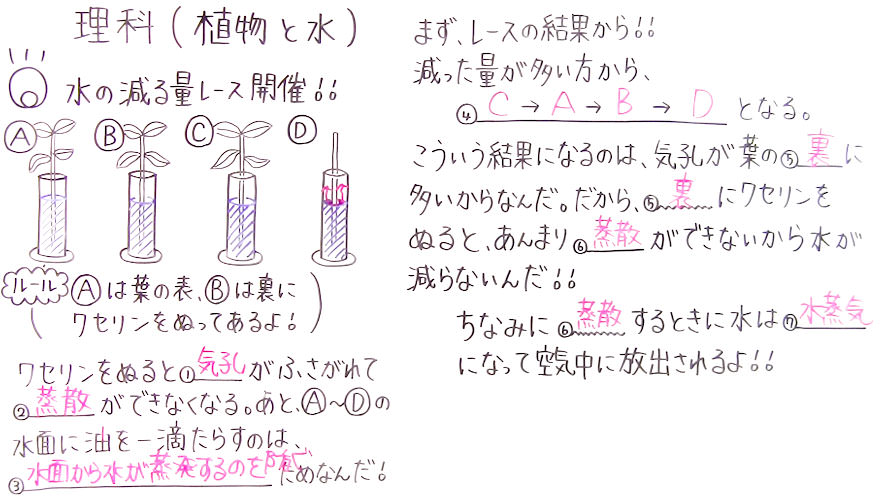 理科(植物と水)
水の減る量レース開催!!
Ⓐ Ⓑ Ⓒ Ⓓ
ルール Ⓐは葉の表、Ⓑは裏に
ワセリンをぬってあるよ!
ワセリンをぬると①気孔がふさがれて
②蒸散ができなくなる。あと、Ⓐ~Ⓓの
水面に油を一滴たらすのは、
③水面から水が蒸発するのを防ぐためなんだ!
まず、レースの結果から!!
減った量が多い方から、
④C→A→B→Dとなる。
こういう結果になるのは、気孔が葉の⑤裏に
多いからなんだ。だから、⑤裏にワセリンを
ぬると、あんまり⑥蒸散ができないから水が
減らないんだ!!
ちなみに⑥蒸散するときに水は⑦水蒸気
になって空気中に放出されるよ!!